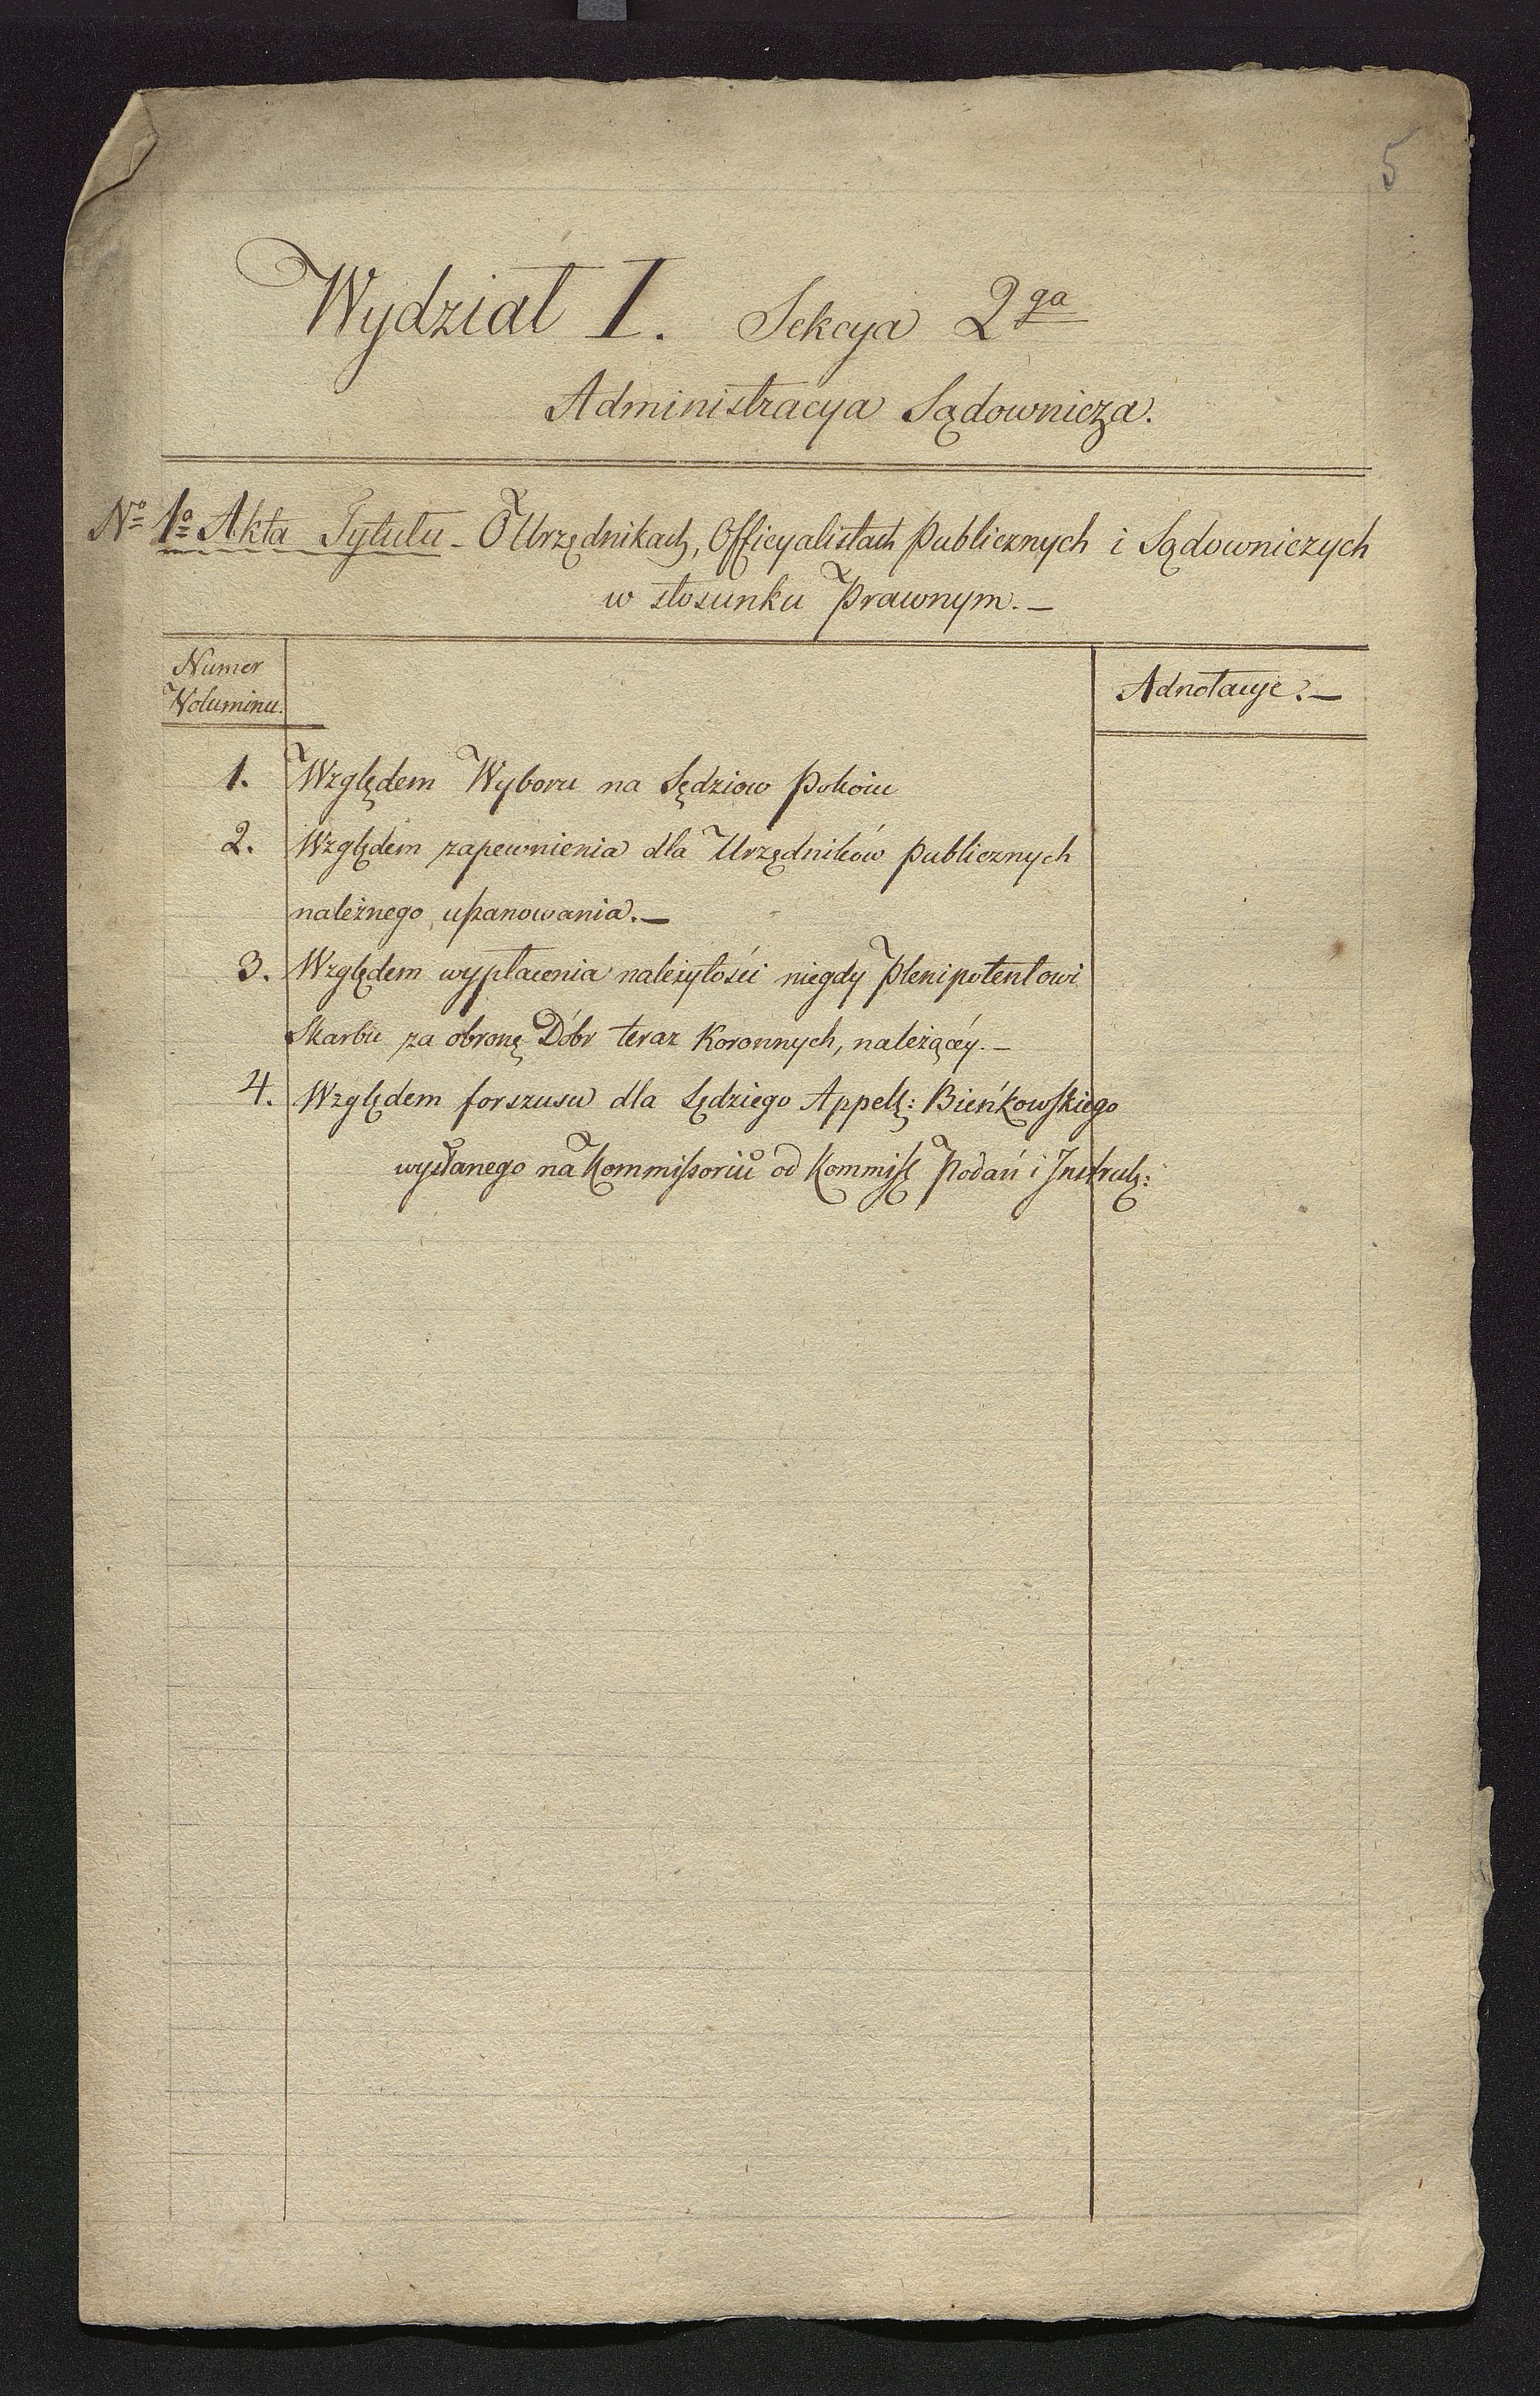 5
Wydział I. Sekcya 2ga
Administracya Sądownicza.
No 1o Akta Tytułu - O Urzędnikach, Officyalistach Publicznych i Sądowniczych
w stosunku Prawnym. —
Numer
Voluminu.
Adnotacye. —
1. Względem Wyboru na Sędziow Pokoiu
2. Względem zapewnienia dla Urzędników Publicznych
należnego uszanowania. —
3. Względem wypłacenia należytości niegdy Plenipotentowi
Skarbu za obronę Dóbr teraz Koronnych, należącéy. —
4. Względem forszusu dla Sędziego Appell: Bieńkowskiego
wysłanego na Kommissoriũ od Kommiss Podań i Instrukc: